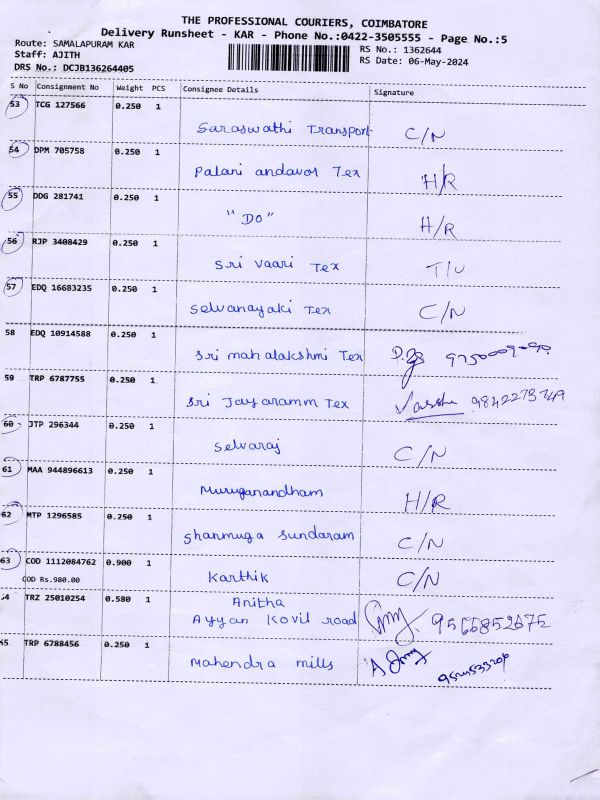 THE PROFESSIONAL COURIERS, COIMBATORE
Delivery Runsheet - KAR - Phone No.:0422-3505555 - Page No.:5
Route: SAMALAPURAM KAR
Staff: AJITH
DRS No.: DCJB136264405
RS No.: 1362644
RS Date: 06-May-2024
S No Consignment No Weight PCS Consignee Details Signature
53 TCG 127566 0.250 1
Saraswathi Transport C/N
54 DPM 705758 0.250 1
Palani andavor Tex H/R
55 DDG 281741 0.250 1
"DO" H/R
56 RJP 3408429 0.250 1
Sri Vaari Tex T/U
57 EDQ 16683235 0.250 1
Selvanayaki Tex C/N
58 EDQ 10914588 0.250 1
Sri mahalakshmi Tex
59 TRP 6787755 0.250 1
Sri Jayaramm Tex 9842273749
60 JTP 296344 0.250 1
Selvaraj C/N
61 MAA 944896613 0.250 1
Muruganandham H/R
62 MTP 1296585 0.250 1
Shanmuga Sundaram C/N
63 COD 1112084762 0.900 1
COD Rs.980.00 Karthik C/N
4 TRZ 25010254 0.580 1 Anitha
Ayyan Kovil road 9566852675
5 TRP 6788456 0.250 1
Mahendra mills